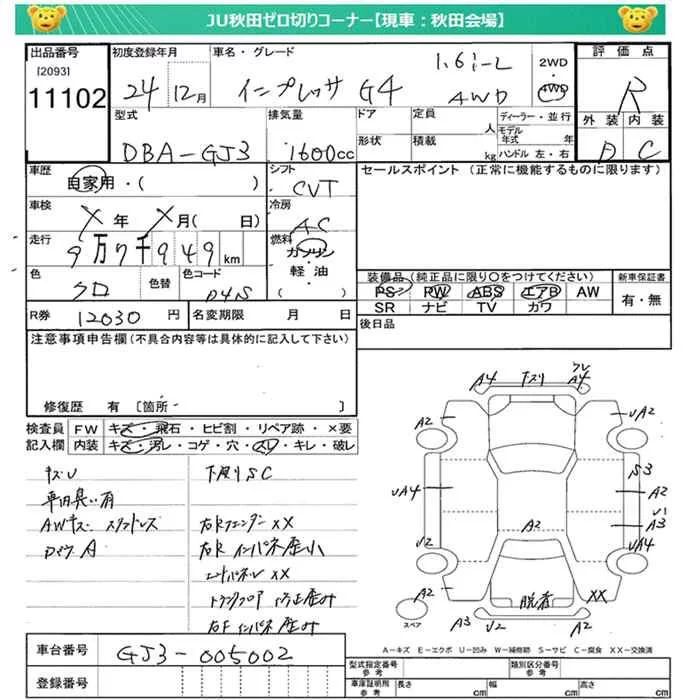 JU秋田ゼロ切りコーナー【現車：秋田会場】
出品番号 初度登録年月 車名・グレード 評価点
[2093]
11102
24 12月 インプレッサ G4 1.6i-L AWD
2WD
4WD
R
型式 排気量 ドア 定員 人 ディーラー・並行
形状 積載 kg モデル年式 年
ハンドル 左・右
外装 内装
DBA-GJ3 1600cc
D C
車歴 自家用・( ) シフト CVT
セールスポイント（正常に機能するものに限ります）
車検 X 年 X 月( 日) 冷房 AC
走行 9万7千949km 燃料 ガソリン
軽油
( )
色 クロ 色替 色コード D4S
装備品（純正品に限り○をつけてください） 新車保証書
PS PW ABS エアB AW 有・無
SR ナビ TV カワ
R券 12030 円 名変期限 月 日
後日品
注意事項申告欄（不具合内容等は具体的に記入して下さい）
修復歴 有 [箇所 ]
検査員 FW キズ・飛石・ヒビ割・リペア跡・×要
記入欄 内装 キズ・汚レ・コゲ・穴・スレ・キレ・破レ
キズU 下廻りSC
AWキズ スタッドレス 右Rフェンダー XX
A 右R インパネ歪小
エンドパネル XX
トランクフロア
右F インパネ歪み
A4 キズリ A4
A2 UA2
S3
UA4 A2
U1
A3
U2 A2 UA4
A2 脱着 XX
スペア A3 U2 A2
A－キズ E－エクボ U－凹み W－補修跡 S－サビ C－腐食 XX－交換済
車台番号 GJ3-005002
登録番号
型式指定番号 参考 類別区分番号 参考
車庫証明用 参考 長さ cm 幅 cm 高さ cm